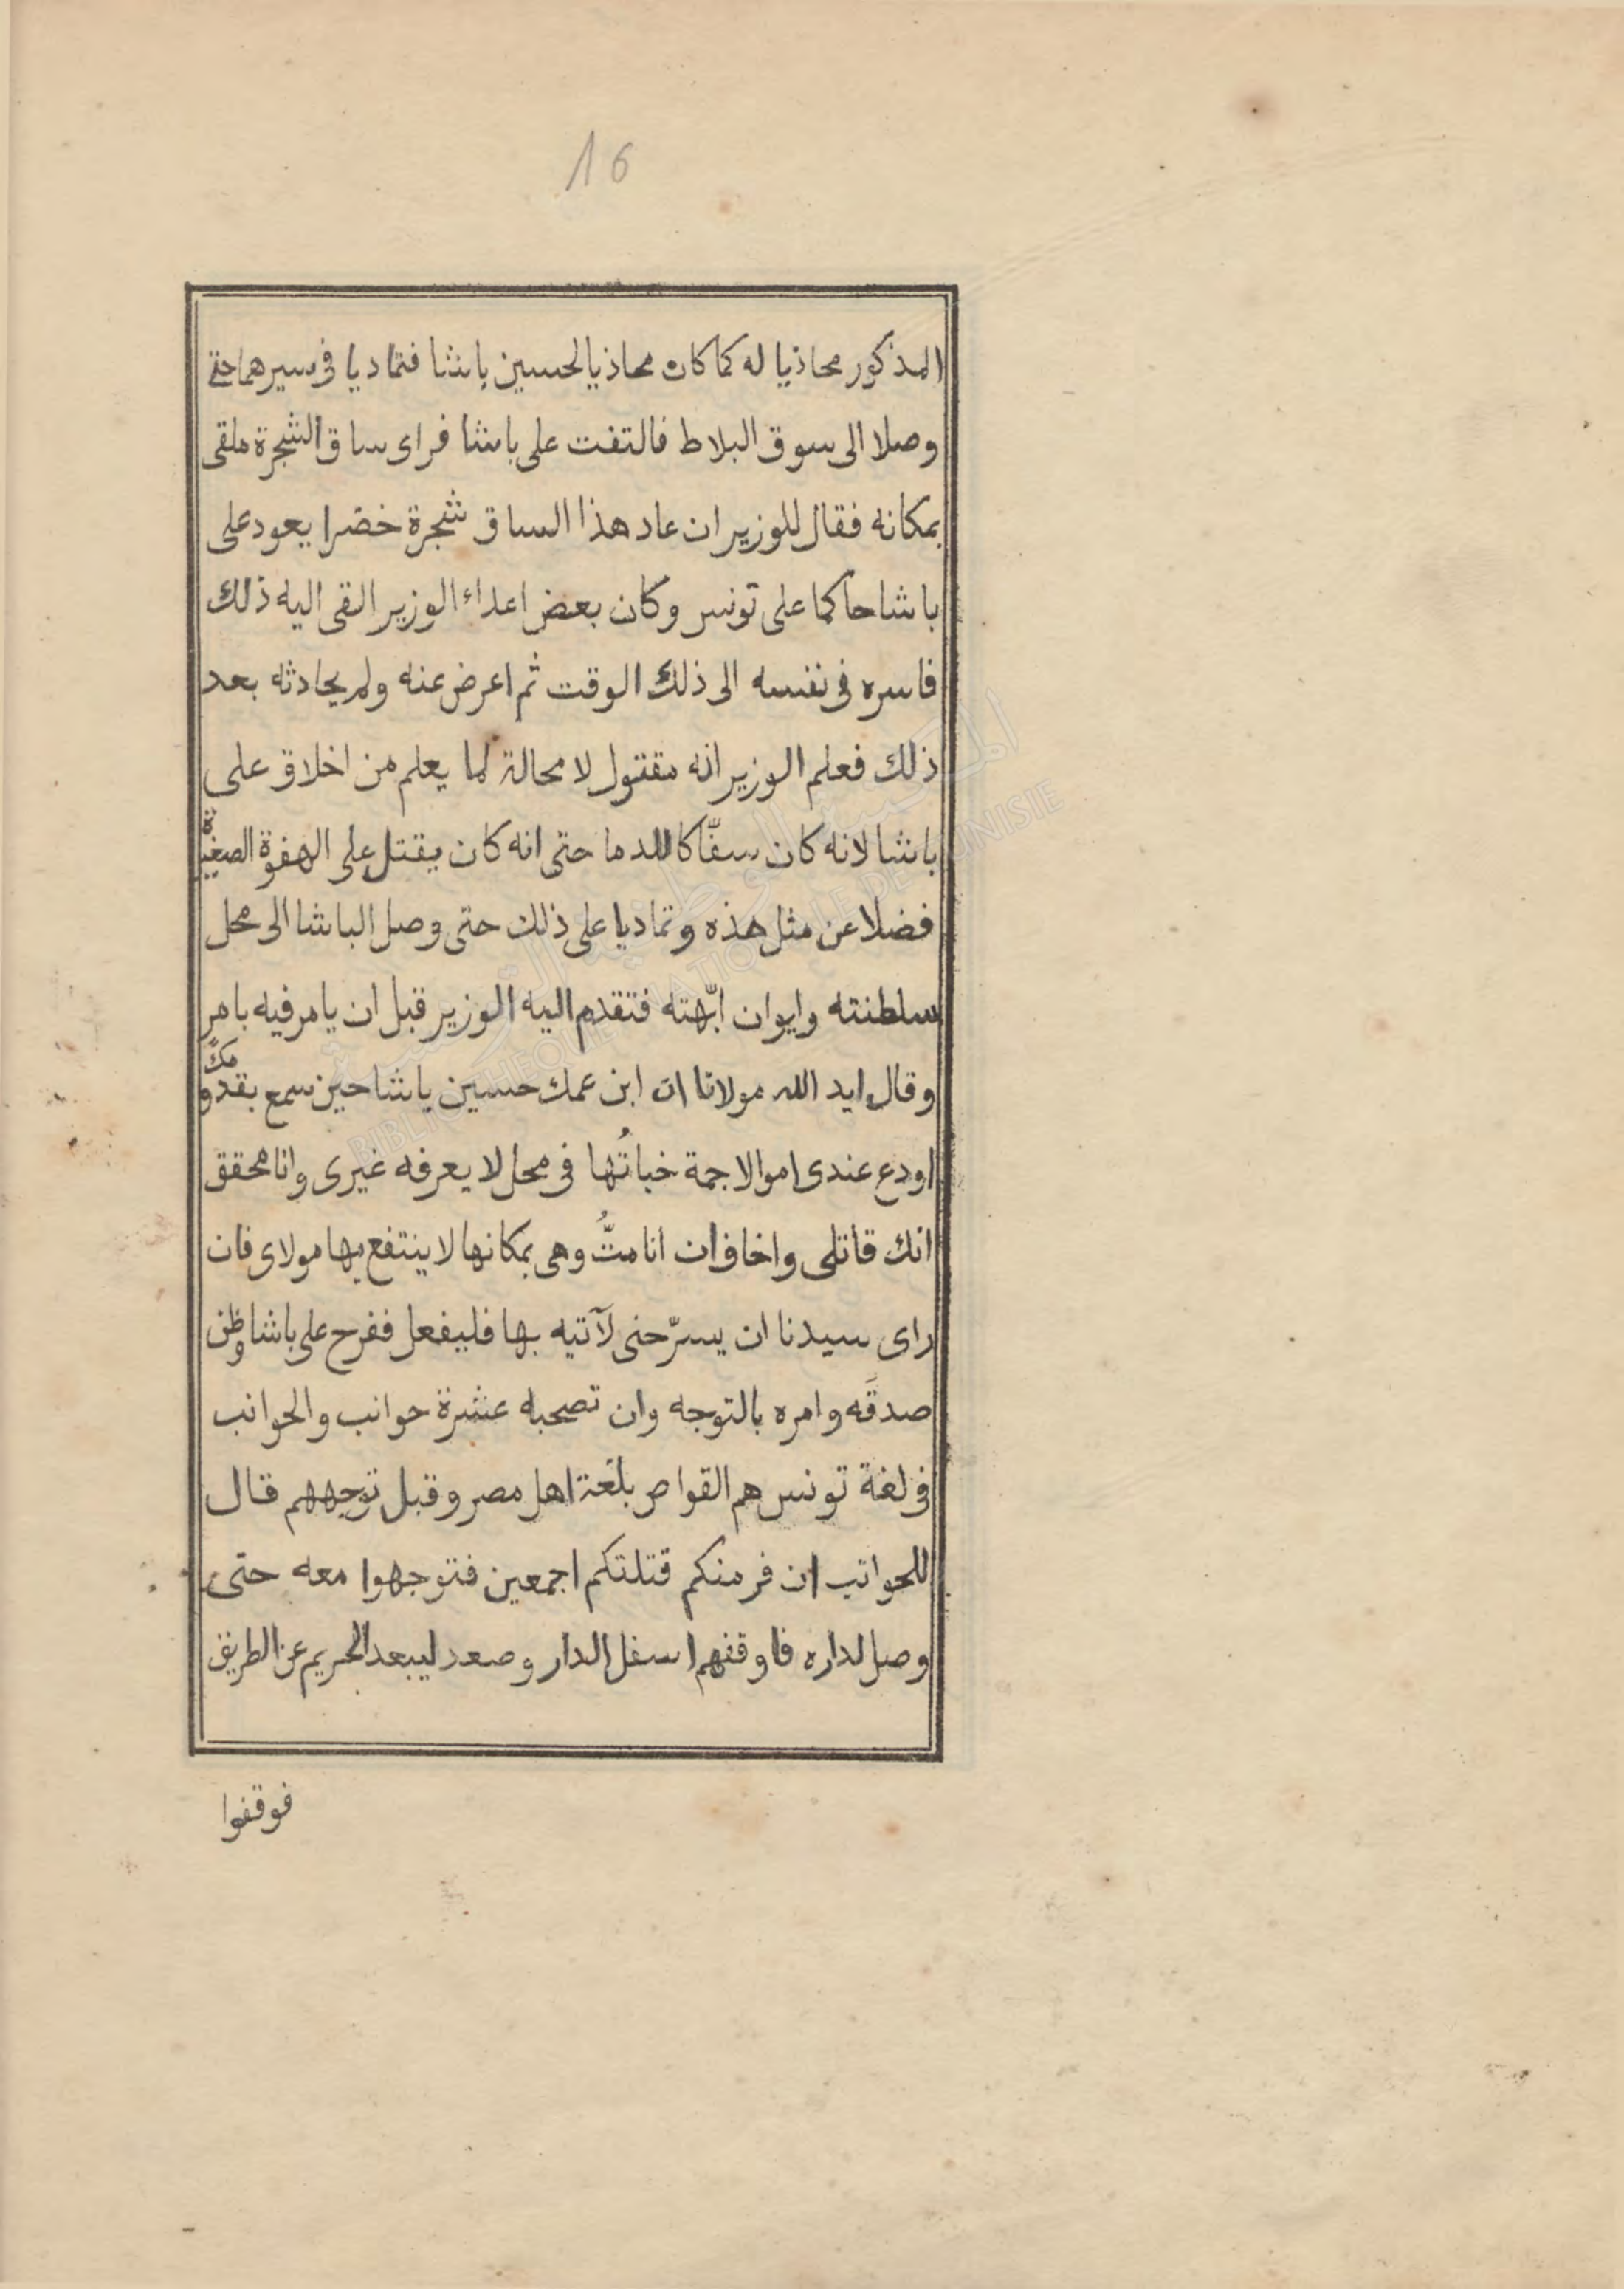 16
المذكور محاذيا له كما كان محاذيا لحسين باشا فتماديا فى سيرهما حتى
وصلا الى سوق البلاط فالتفت على باشا فراى ساق الشجرة ملقى
بمكانه فقال للوزير ان عاد هذا الساق شجرة خضرا يعود على
باشا حاكما على تونس وكان بعض اعداء الوزير القى اليه ذلك
فاسره فى نفسه الى ذلك الوقت ثم اعرض عنه ولم يحادثه بعد
ذلك فعلم الوزير انه مقتول لا محالة لما يعلم من اخلاق على
باشا لانه كان سفّاكا للدما حتى انه كان يقتل على الهفوة الصغيرة
فضلا عن مثل هذه وتماديا على ذلك حتى وصل الباشا الى محل
سلطنته وايوان ابّهته فتقدم اليه الوزير قبل ان يامر فيه بامر
وقال ايد الله مولانا ان ابن عمك حسين باشا حين سمع بقدومك
اودع عندى اموالا جمة خباتُها فى محل لا يعرفه غيرى وانا محقق
انك قاتلى واخاف ان انا متُّ وهى بمكانها لا ينتفع بها مولاى فان
راى سيدنا ان يسرّحنى لآتيه بها فليفعل ففرح على باشا وظن
صدقَه وامره بالتوجه وان تصحبه عشرة حوانب والحوانب
فى لغة تونس هم القواص بلغة اهل مصر وقبل توجههم قال
للحوانب ان فر منكم قتلتكم اجمعين فتوجهوا معه حتى
وصل لداره فاوقفهم اسفل الدار وصعد ليبعد الحريم عن الطريق
فوقفوا
المكتبة الوطنية التونسية
BIBLIOTHEQUE NATIONALE DE TUNISIE